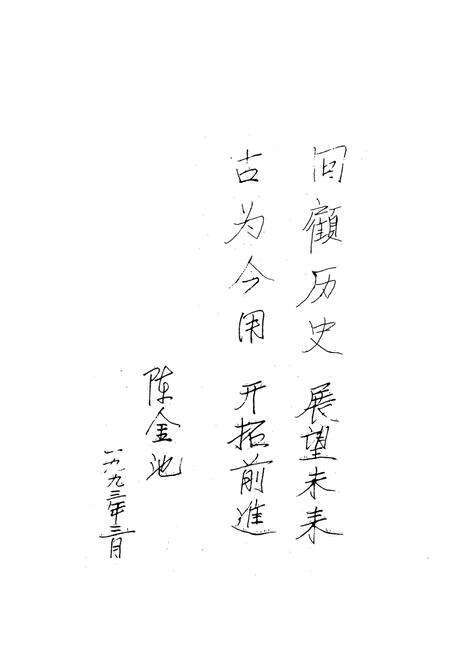 回顧历史 展望未来
古为今用 开拓前進
陈金池
一九九三年三月